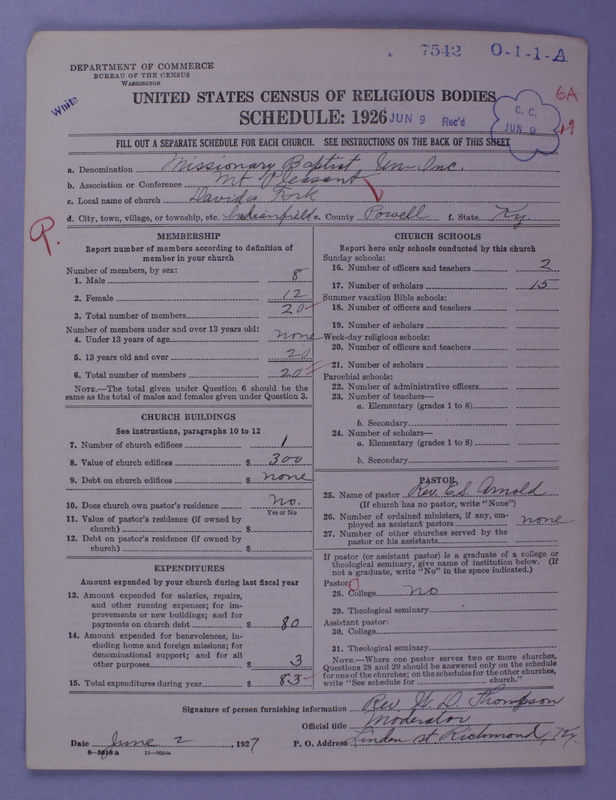 7542 O-I-1-A
DEPARTMENT OF COMMERCE
BUREAU OF THE CENSUS
WASHINGTON
White
UNITED STATES CENSUS OF RELIGIOUS BODIES
SCHEDULE: 1926
JUN 9 Rec'd
C. C.
JUN 9
6A
19
FILL OUT A SEPARATE SCHEDULE FOR EACH CHURCH. SEE INSTRUCTIONS ON THE BACK OF THIS SHEET
a. Denomination Missionary Baptist Un-Inc.
b. Association or Conference Mt Pleasant
c. Local name of church Davids Fork
d. City, town, village, or township, etc. Indianfields e. County Powell f. State Ky.
P.
MEMBERSHIP
Report number of members according to definition of
member in your church
Number of members, by sex:
1. Male 8
2. Female 12
3. Total number of members 20
Number of members under and over 13 years old:
4. Under 13 years of age none
5. 13 years old and over 20
6. Total number of members 20
NOTE.—The total given under Question 6 should be the
same as the total of males and females given under Question 3.
CHURCH BUILDINGS
See instructions, paragraphs 10 to 12
7. Number of church edifices 1
8. Value of church edifices $ 300
9. Debt on church edifices $ none
10. Does church own pastor's residence no.
Yes or No
11. Value of pastor's residence (if owned by
church) $
12. Debt on pastor's residence (if owned by
church) $
EXPENDITURES
Amount expended by your church during last fiscal year
13. Amount expended for salaries, repairs,
and other running expenses; for im-
provements or new buildings; and for
payments on church debt $ 80
14. Amount expended for benevolences, in-
cluding home and foreign missions; for
denominational support; and for all
other purposes $ 3
15. Total expenditures during year $ 83
CHURCH SCHOOLS
Report here only schools conducted by this church
Sunday schools:
16. Number of officers and teachers 2
17. Number of scholars 15
Summer vacation Bible schools:
18. Number of officers and teachers
19. Number of scholars
Week-day religious schools:
20. Number of officers and teachers
21. Number of scholars
Parochial schools:
22. Number of administrative officers
23. Number of teachers—
a. Elementary (grades 1 to 8)
b. Secondary
24. Number of scholars—
a. Elementary (grades 1 to 8)
b. Secondary
PASTOR
25. Name of pastor Rev. E.S. Arnold
(If church has no pastor, write "None")
26. Number of ordained ministers, if any, em-
ployed as assistant pastors none
27. Number of other churches served by the
pastor or his assistants
If pastor (or assistant pastor) is a graduate of a college or
theological seminary, give name of institution below. (If
not a graduate, write "No" in the space indicated.)
Pastor:
28. College no
29. Theological seminary
Assistant pastor:
30. College
31. Theological seminary
NOTE.—Where one pastor serves two or more churches,
Questions 28 and 29 should be answered only on the schedule
for one of the churches; on the schedules for the other churches,
write "See schedule for church."
Signature of person furnishing information Rev. W. D. Thompson
Official title Moderator
Date June 2, 1927 P. O. Address Linden st Richmond, Ky.